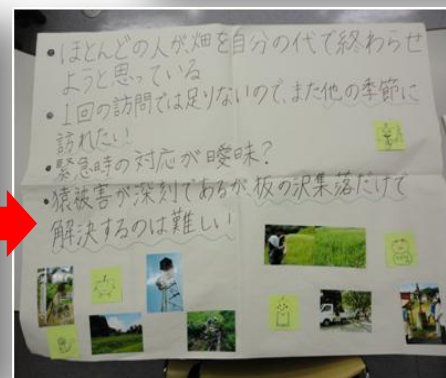 • ほとんどの人が、畑を自分の代で終わらせ
ようと思っている
• 1回の訪問では足りないので、また他の季節に
訪れたい
• 緊急時の対応が曖昧？
• 猿被害が深刻であるが、板の沢集落だけで
解決するのは難しい